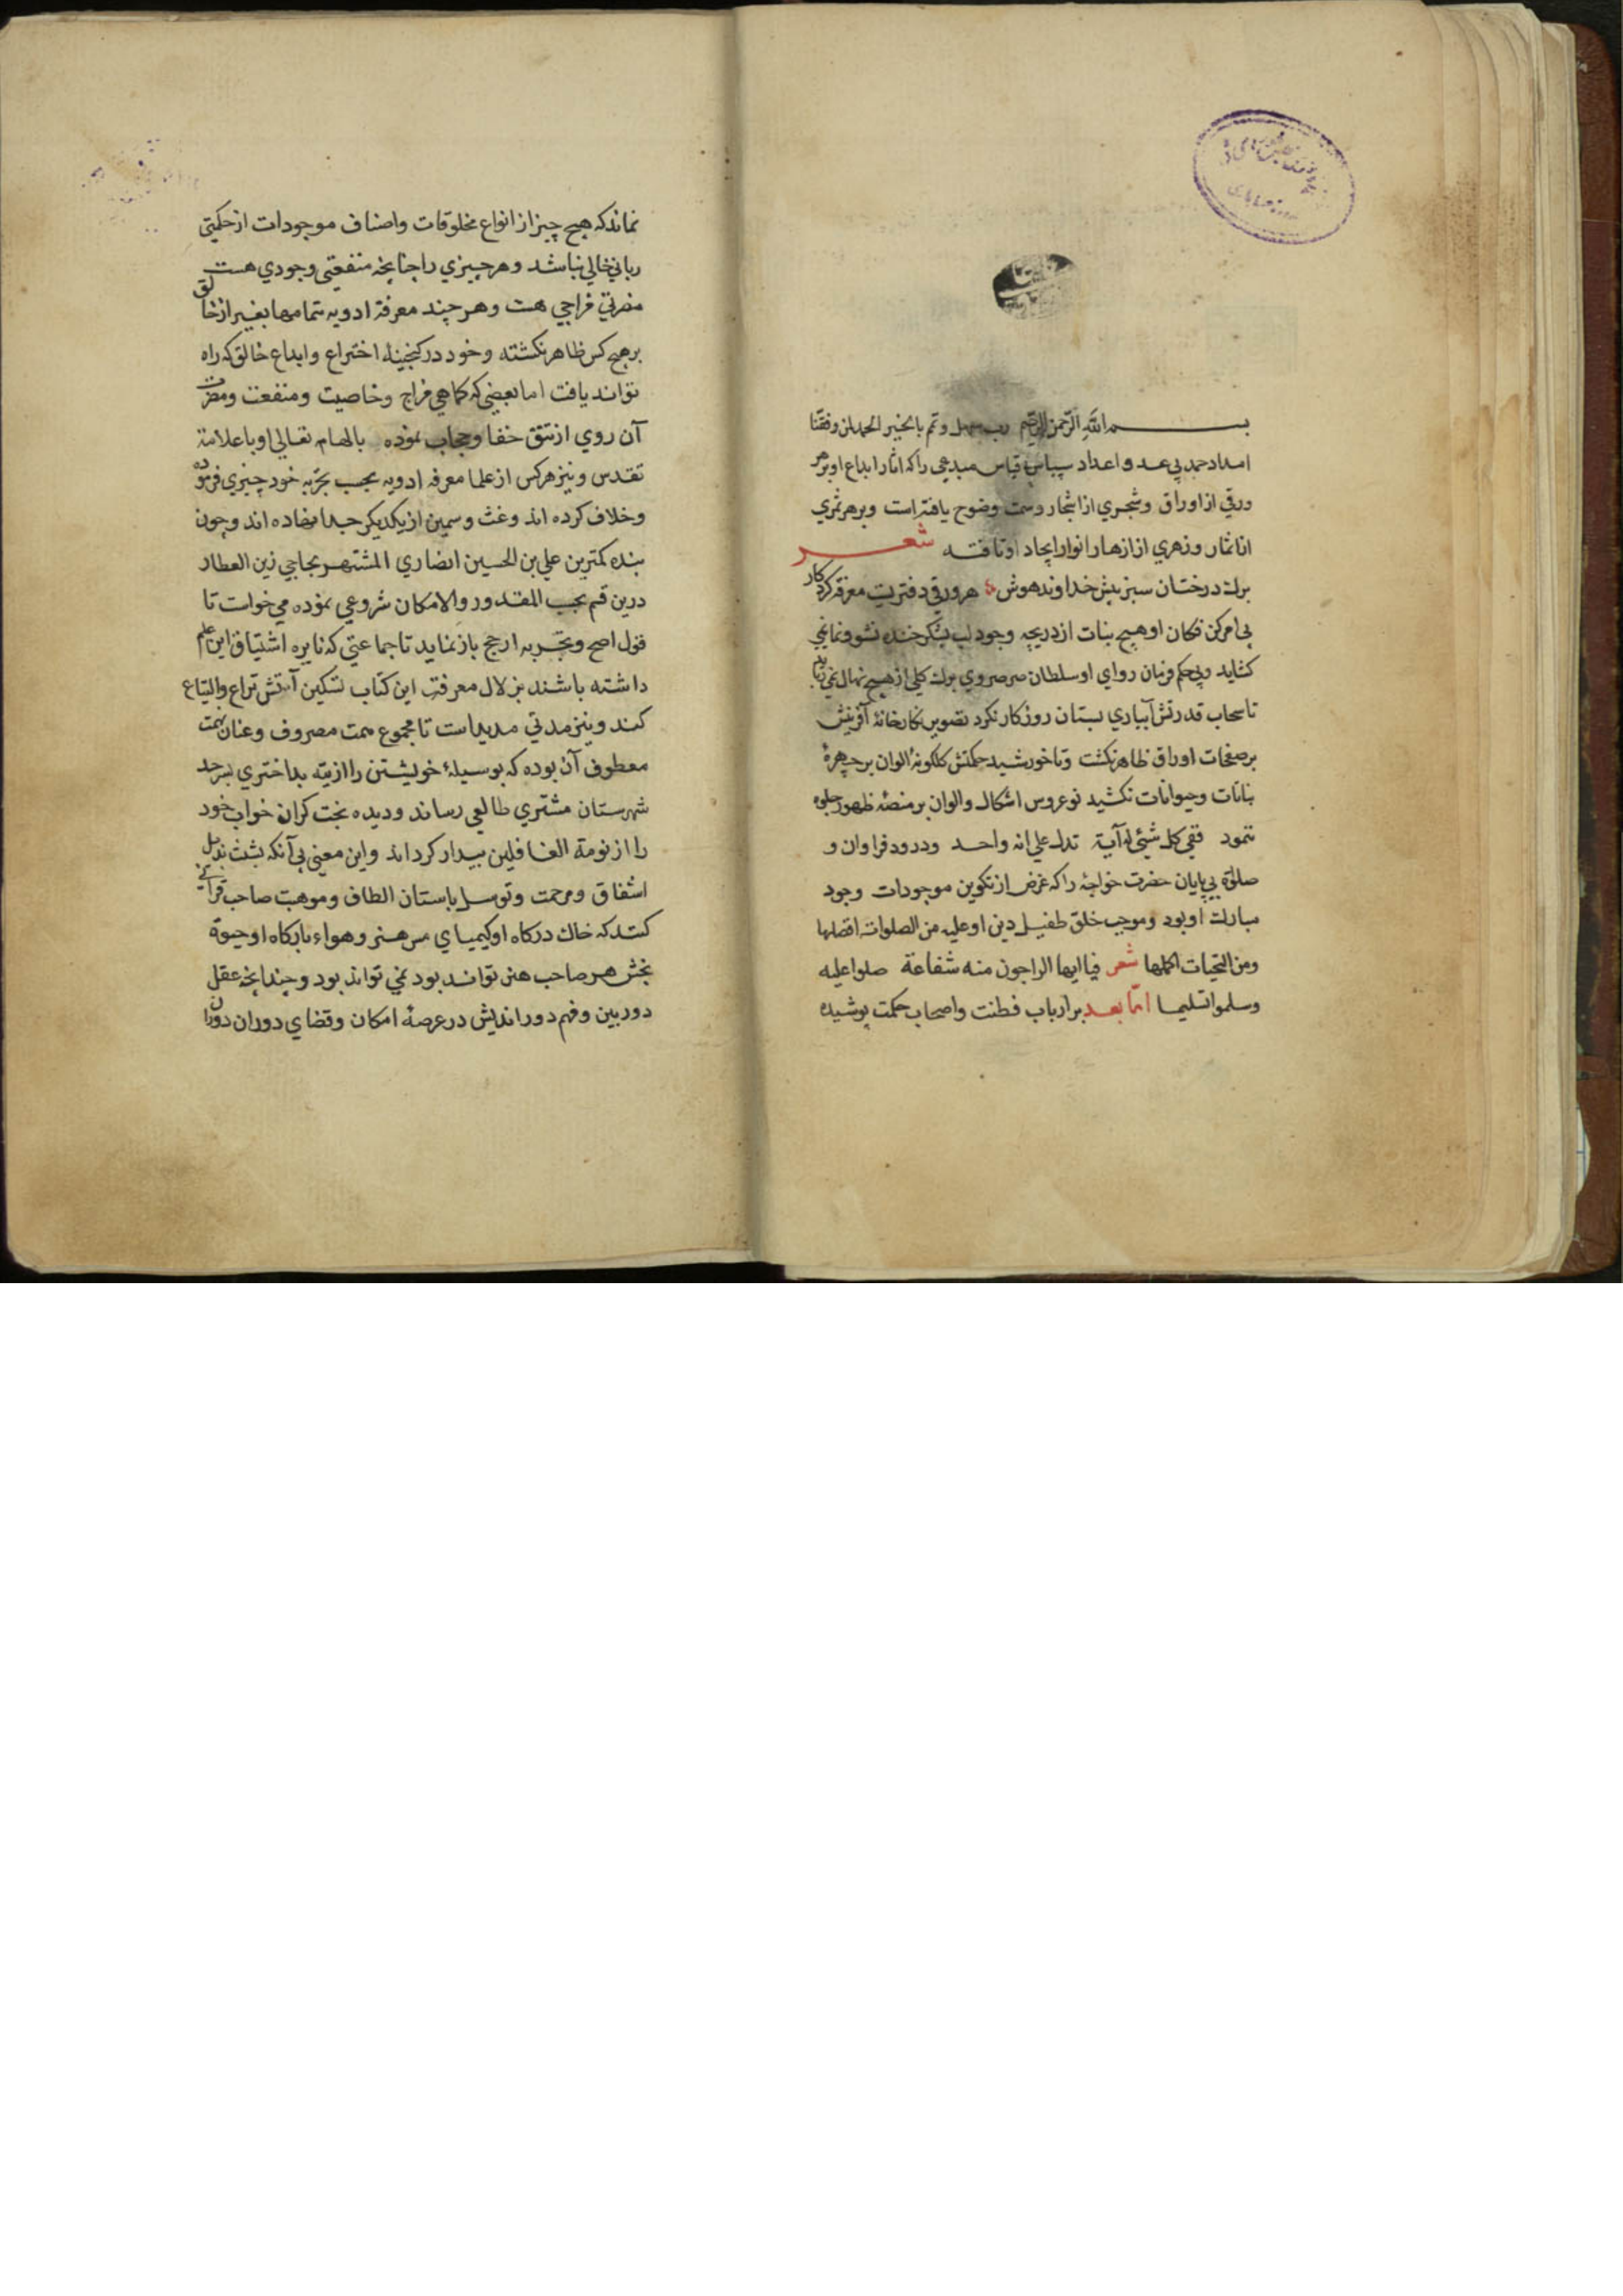 بسم الله الرحمن الرحیم رب سهل و تمم بالخیر الحمد لمن وفقنا
امداد حمد بی عد و اعداد سپاس بی قیاس مبدعی را که اثار ابداع او بر هر
ورقی از اوراق و شجری از اشجار وسمت وضوح یافته است و بر هر ثمری
از اثمار و زهری از ازهار انوار ایجاد او تافته شعر
برك درختان سبز پیش خداوند هوش هر ورقی دفتریست معرفة کردکار
بی امر کن فکان او هیچ بنات از دریچه وجود لب بشکر خنده نشو و نما نمی
کشاید و بی حکم فرمان روای او سلطان صرصر وی برك کلی از هیچ نهال نمی
تا سحاب قدرتش آبیاری بستان روزکار نکرد تصویر نکارخانهٔ آفرینش
بر صفحات اوراق ظاهر نکشت و تا خورشید حکمتش کلکونهٔ الوان بر چهرهٔ
نباتات و حیوانات نکشید نو عروس اشکال و الوان بر منصهٔ ظهور جلوه
ننمود ففی کل شیٔ له آیة تدل علی انه واحد و درود فراوان و
صلوٰة بی پایان حضرت خواجهٔ را که غرض از تکوین موجودات وجود
مبارك او بود و موجب خلق طفیل دین او علیه من الصلوات افضلها
و من التحیات اکملها شعر فیا ایها الراجون منه شفاعة صلوا علیه
و سلموا تسلیما امّا بعد بر ارباب فطنت و اصحاب حکمت پوشیده
نماند که هیچ چیز از انواع مخلوقات و اصناف موجودات از حکمتی
ربانی خالی نباشد و هر چیزی را چنانچه منفعتی وجودی هست
مضرتی مزاجی هست و هر چند معرفة ادویه تمامها بغیر از خالق
بر هیچ کس ظاهر نکشته و خود در کنجینهٔ اختراع و ابداع خالق که راه
تواند یافت اما بعضی که کماهی مزاج و خاصیت و منفعت و مضرت
آن روی از تتق خفا و حجاب نموده بالهام تعالی او باعلامة
تقدس و نیز هر کس از علما معرفه ادویه بحسب تجربه خود چیزی فرموده
و خلاف کرده اند و غث و سمین از یکدیکر جدا نهاده اند و چون
بنده کمترین علی بن الحسین انصاری المشتهر بحاجی زین العطار
درین قسم بحسب المقدور والامکان شروعی نموده می خواست تا
قول اصح و تجربه ارجح باز نماید تا جماعتی که نایره اشتیاق این علم
داشته باشند بزلال معرفت این کتاب تسکین آتش نزاع والتیاع
کنند و نیز مدتی مدیدست تا مجموع همت مصروف و عنان نهمت
معطوف آن بوده که بوسیلهٔ خویشتن را از تیه بداختری بسرحد
شهرستان مشتری طالعی رساند و دیده بخت کران خواب خود
را از نومة الغافلین بیدار کرداند و این معنی بی آنکه تشبث بذیل
اشفاق و مرحمت و توسل باستان الطاف و موهبت صاحب
کند که خاك درکاه او کیمیای مس هنر و هواء بارکاه او حیوة
بخش هر صاحب هنر تواند بود نمی تواند بود و چندانچه عقل
دوربین و فهم دوراندیش در عرصهٔ امکان و قضای دوران